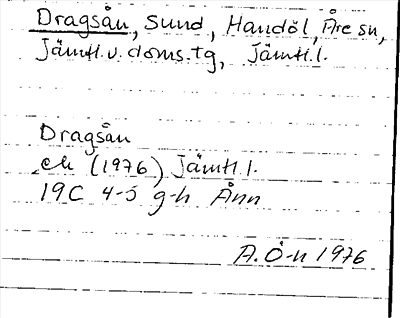 Dragsån, Sund, Handöl, Åre sn,
Jämtl.v. doms.tg, Jämtl.l.
Dragsån
ek (1976) Jämtl.l.
19C 4-5 g-h Ånn
A.Ö-n 1976